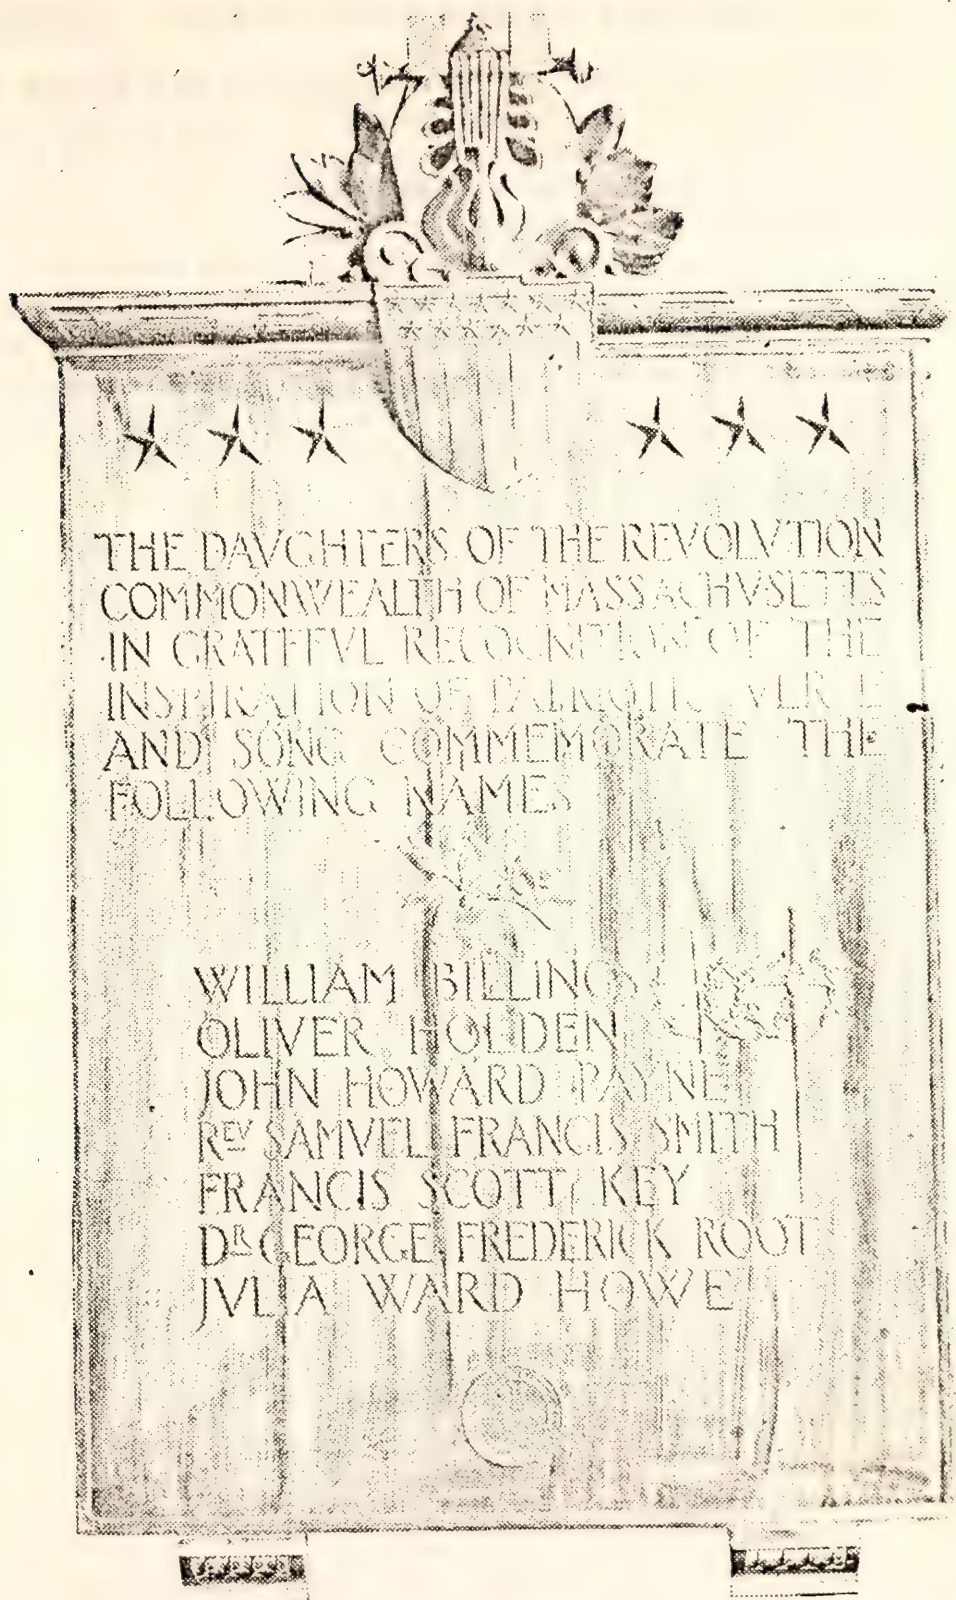 THE DAVGHTERS OF THE REVOLVTION
COMMONWEALTH OF MASSACHVSETTS
IN GRATEFVL RECOGNITION OF THE
INSPIRATION OF PATRIOTIC VERSE
AND SONG COMMEMORATE THE
FOLLOWING NAMES
WILLIAM BILLINGS
OLIVER HOLDEN
JOHN HOWARD PAYNE
REV SAMVEL FRANCIS SMITH
FRANCIS SCOTT KEY
DR GEORGE FREDERICK ROOT
JVLIA WARD HOWE